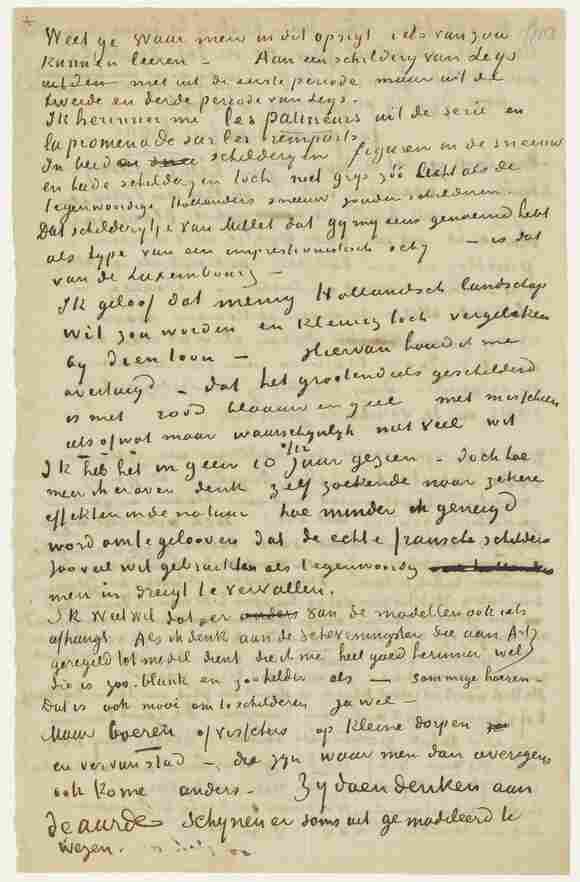 Weet ge waar men in dit opzigt iets van zou
kunnen leeren – Aan een schildery van Leys
niet uit de eerste periode maar uit de
tweede en derde periode van Leys.
Ik herinner me les patineurs uit de serie en
la promenade sur les remparts
In beide schilderyen figuren in de sneeuw
en beide schilderyen toch niet grys zóó licht als de
tegenwoordige Hollanders sneeuw zouden schilderen.
Dat schilderytje van Millet dat gy my eens genoemd hebt
als type van een impressionistisch – is dat
van de Luxembourg –
Ik geloof dat menig Hollandsch landschap
wit zou worden en kleurig toch vergeleken
by dien toon – Hiervan houd ik me
overtuigd – dat het grootendeels geschilderd
is met rood blaauw en geel met misschien
iets of wat maar waarschynlyk niet veel wit
Ik heb het in geen 10 à 12 jaar gezien – doch hoe
meer ik er over denk zelf zoekende naar zekere
effekten in de natuur hoe minder ik geneigd
word om te gelooven dat de echte fransche schilders
zooveel wit gebruikten als tegenwoordig
men in dreigt te vervallen.
Ik weet wel dat er van de modellen ook iets
afhangt. Als ik denk aan de Scheveningster die aan Artz
geregeld tot model dient die ik me heel goed herinner wel
die is zoo blank en zoo helder als – sommige hoeren –
Dat is ook mooi om te schilderen ja wel –
Maar boeren of visschers op kleine dorpen
en ver van stad –, die zyn waar men dan overigens
ook kome anders – Zy doen denken aan
de aarde schynen er soms uit gemodeleerd te
wezen.